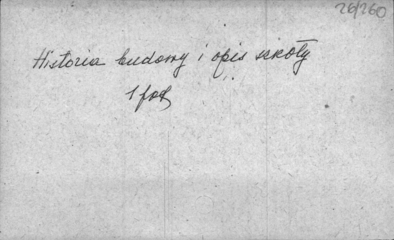 26/260
Historia budowy i opis szkoły
1 fot